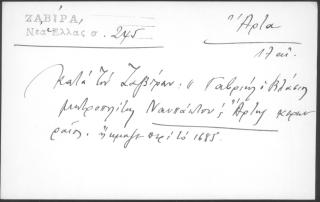 ΖΑΒΙΡΑ,
Νεα Ελλας σ. 245
Ἄρτα
17 αἰ.
Κατά τόν Ζαβίραν ὁ Γαβριήλ ὁ Βλάσιος
μητροπολίτης Ναυπάκτου & Ἄρτης
ἤκμαζε περί τό 1685.